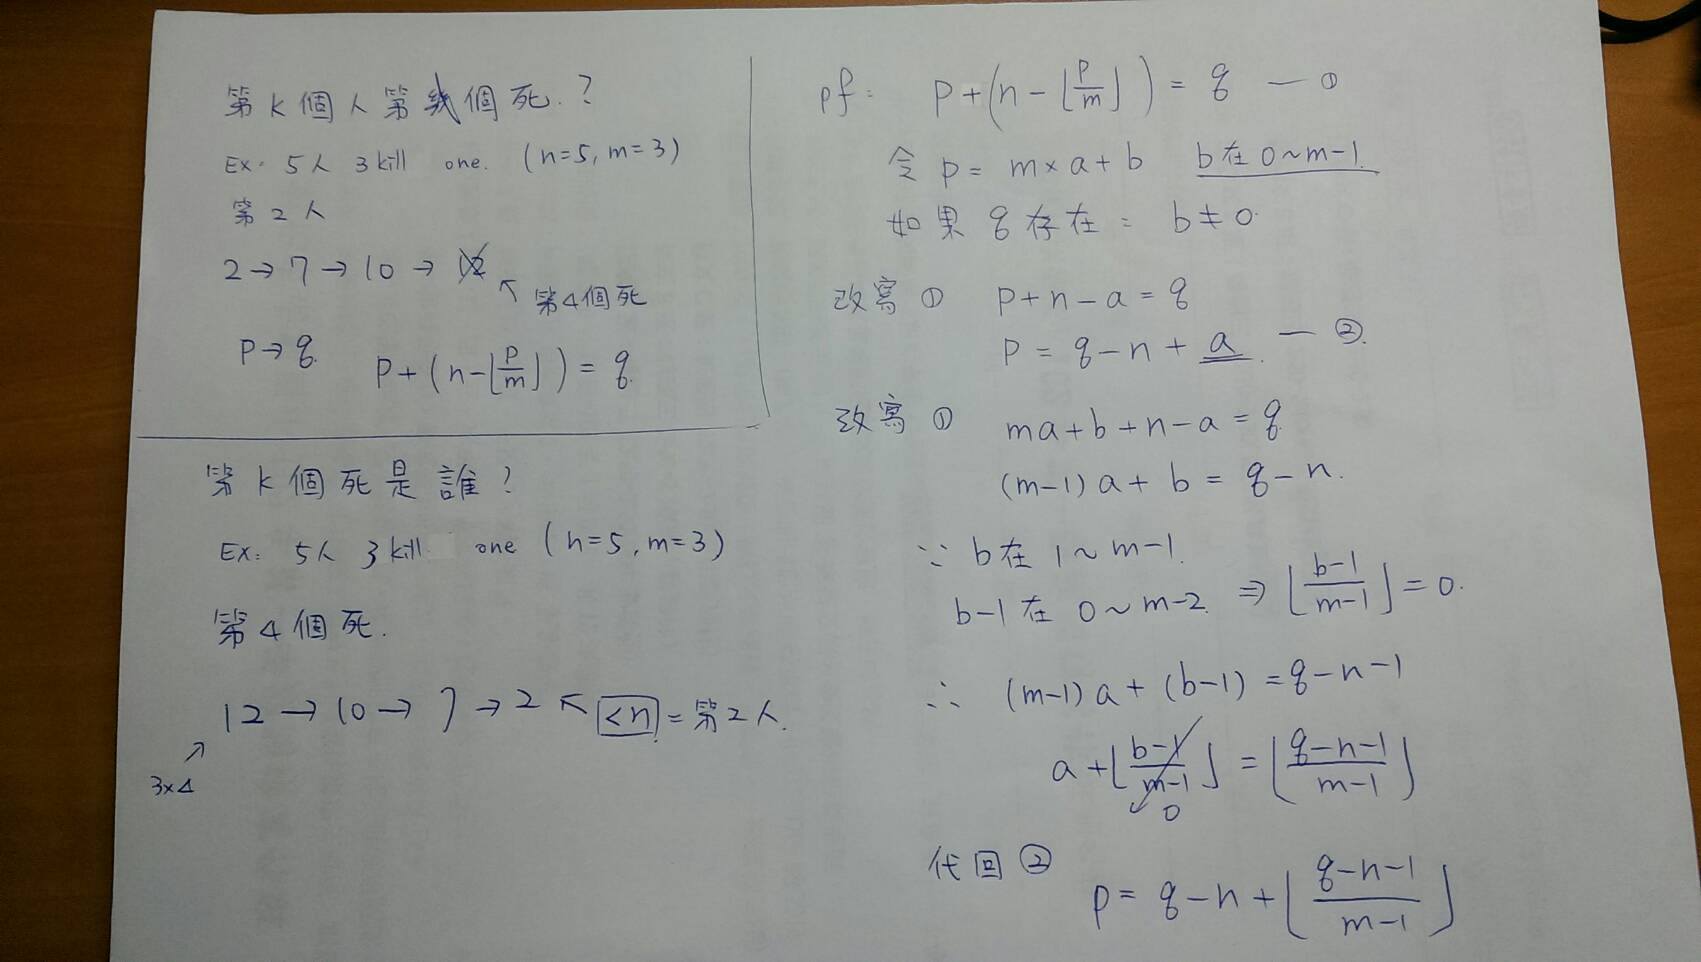 第 k 個人第幾個死.?
Ex. 5人 3 kill one. (n=5, m=3)
第 2 人
2 → 7 → 10 → 12
↖ 第4個死
p → q. p + (n - ⌊p/m⌋) = q.
第 k 個死是誰?
Ex: 5人 3 kill one (n=5, m=3)
第 4 個死.
12 → 10 → 7 → 2 ↖ <n = 第 2 人.
↗
3×4
pf: p + (n - ⌊p/m⌋) = q — ①
令 p = m × a + b b在 0 ~ m-1.
如果 q 存在: b ≠ 0.
改寫 ① p + n - a = q
p = q - n + a. — ②.
改寫 ① ma + b + n - a = q.
(m-1) a + b = q - n.
∵ b在 1 ~ m-1.
b-1 在 0 ~ m-2. ⇒ ⌊(b-1)/(m-1)⌋ = 0.
∴ (m-1) a + (b-1) = q - n - 1
a + ⌊(b-1)/(m-1)⌋ = ⌊(q-n-1)/(m-1)⌋
0
代回 ②
p = q - n + ⌊(q-n-1)/(m-1)⌋